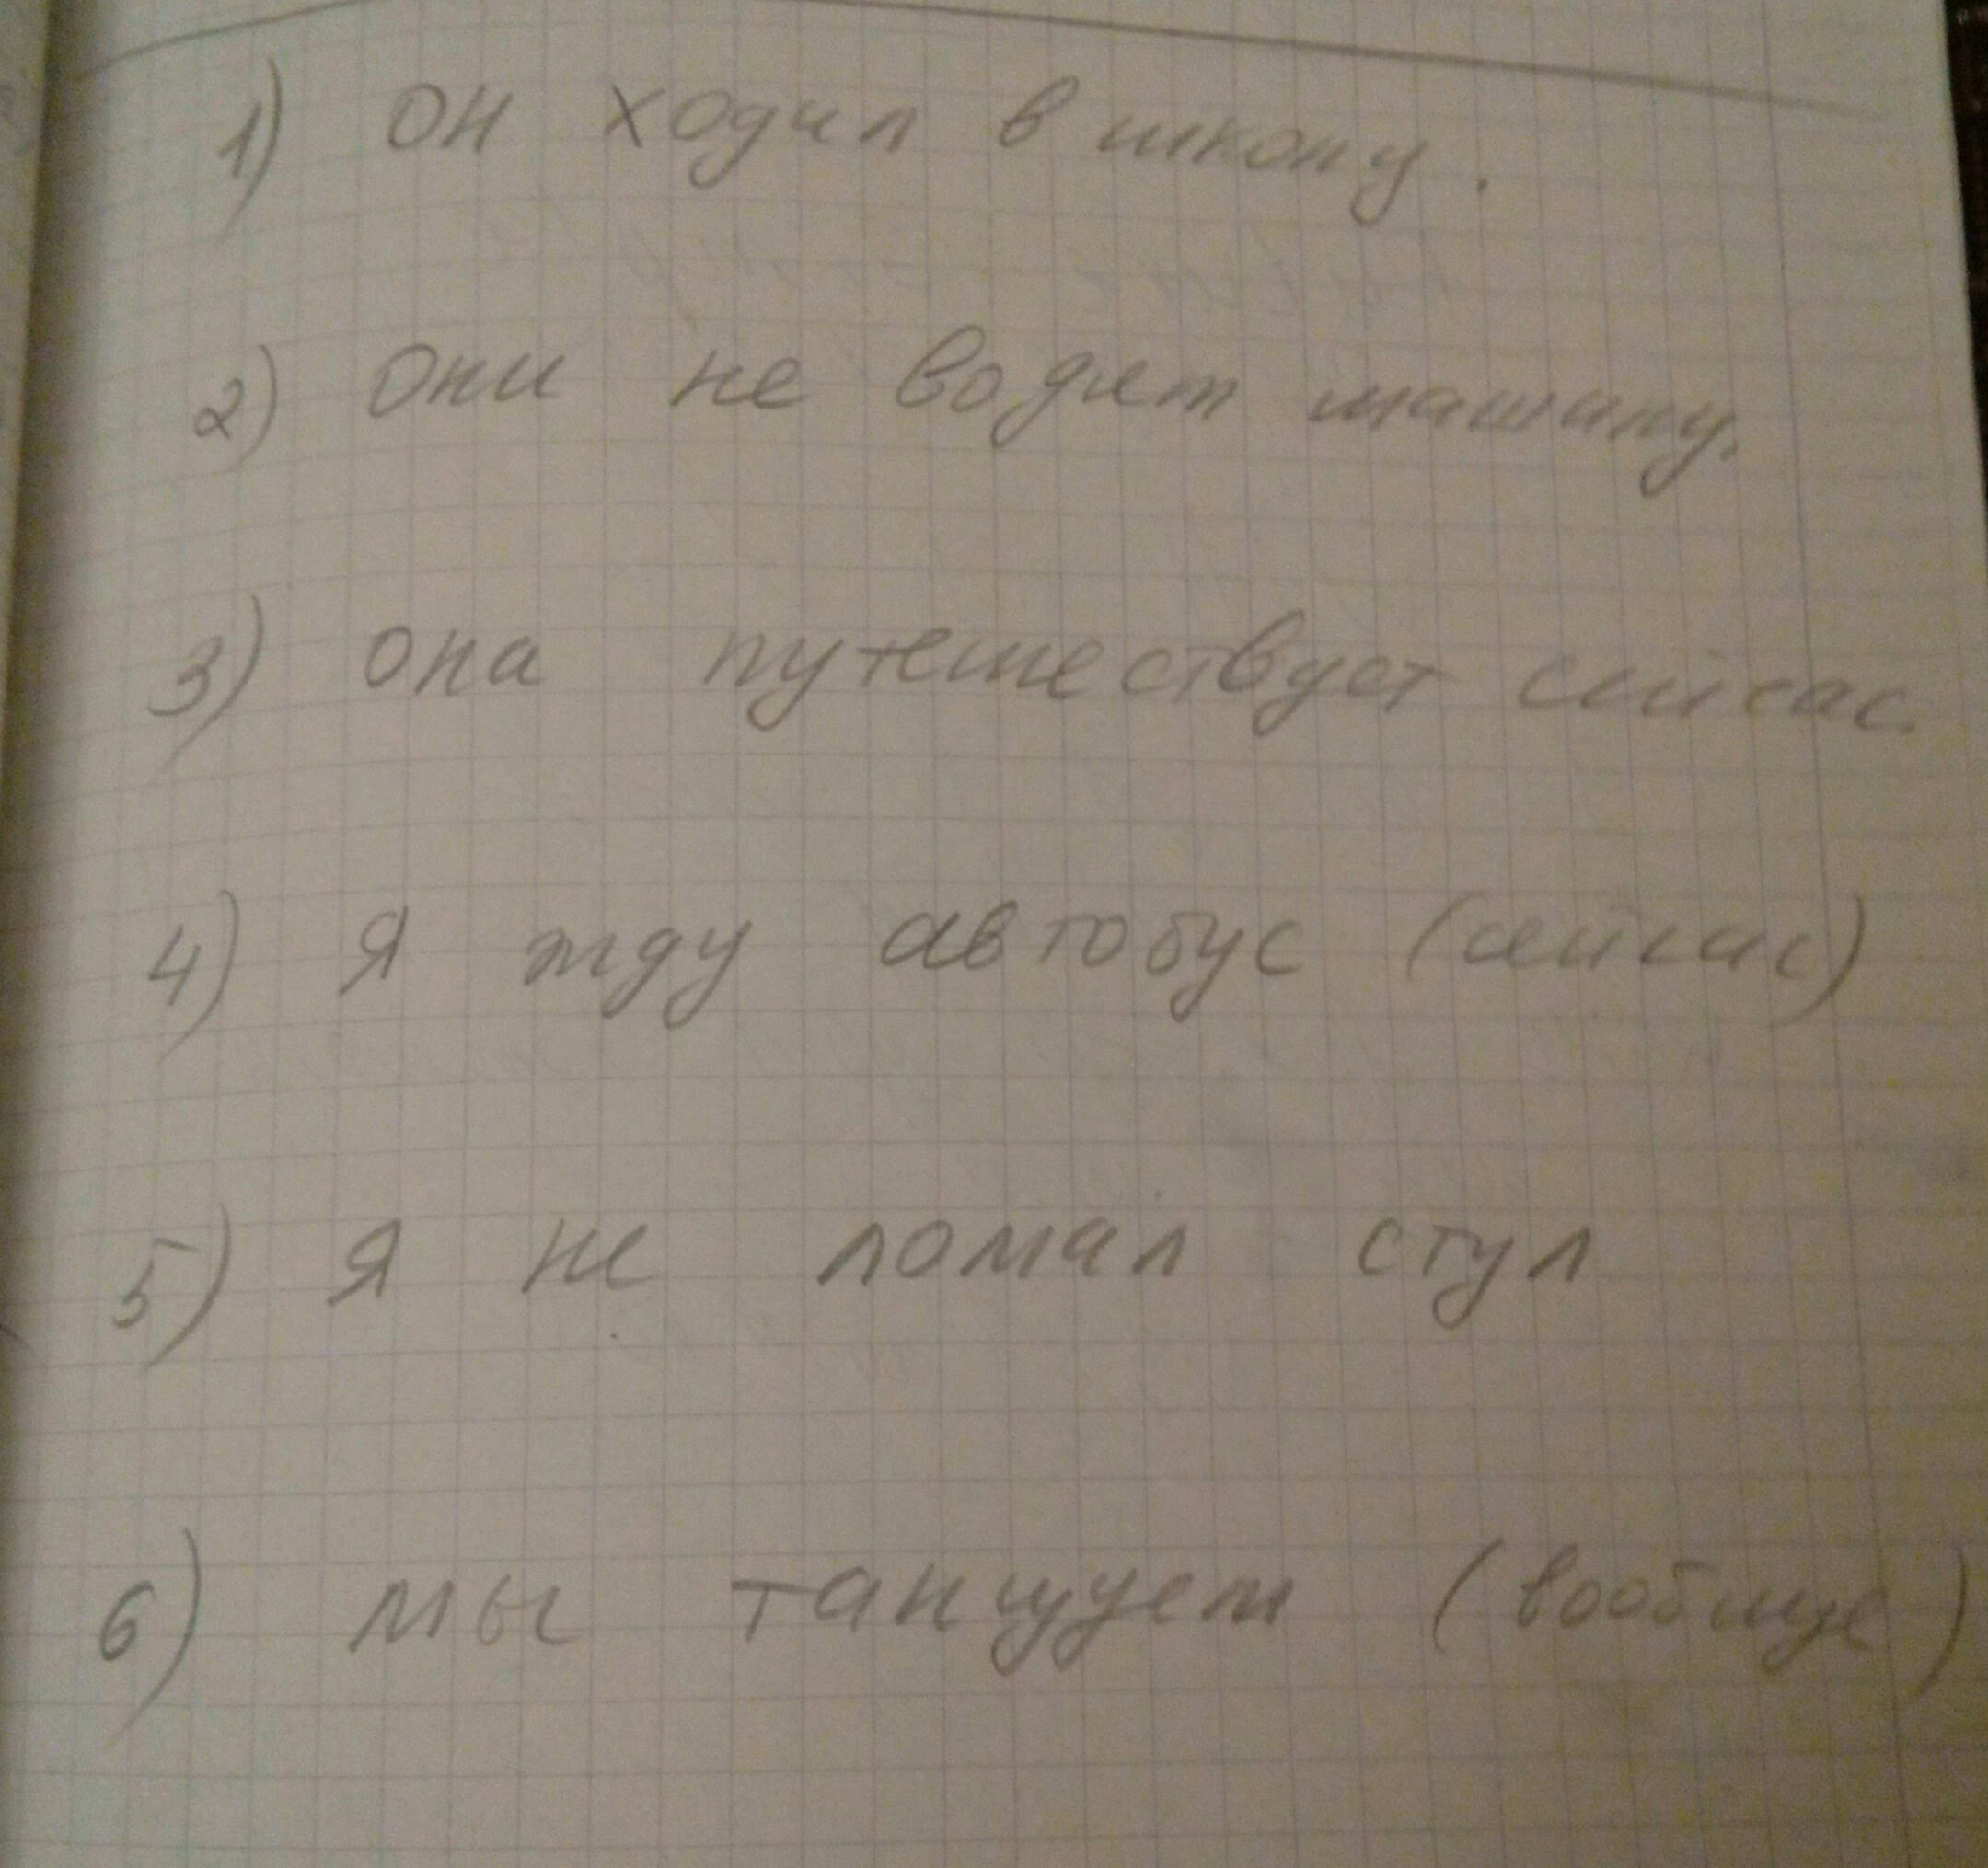 1) он ходил в школу.
2) Они не водят машину.
3) она путешествует сейчас.
4) Я жду автобус (сейчас)
5) Я не ломал стул
6) мы танцуем (вообще)